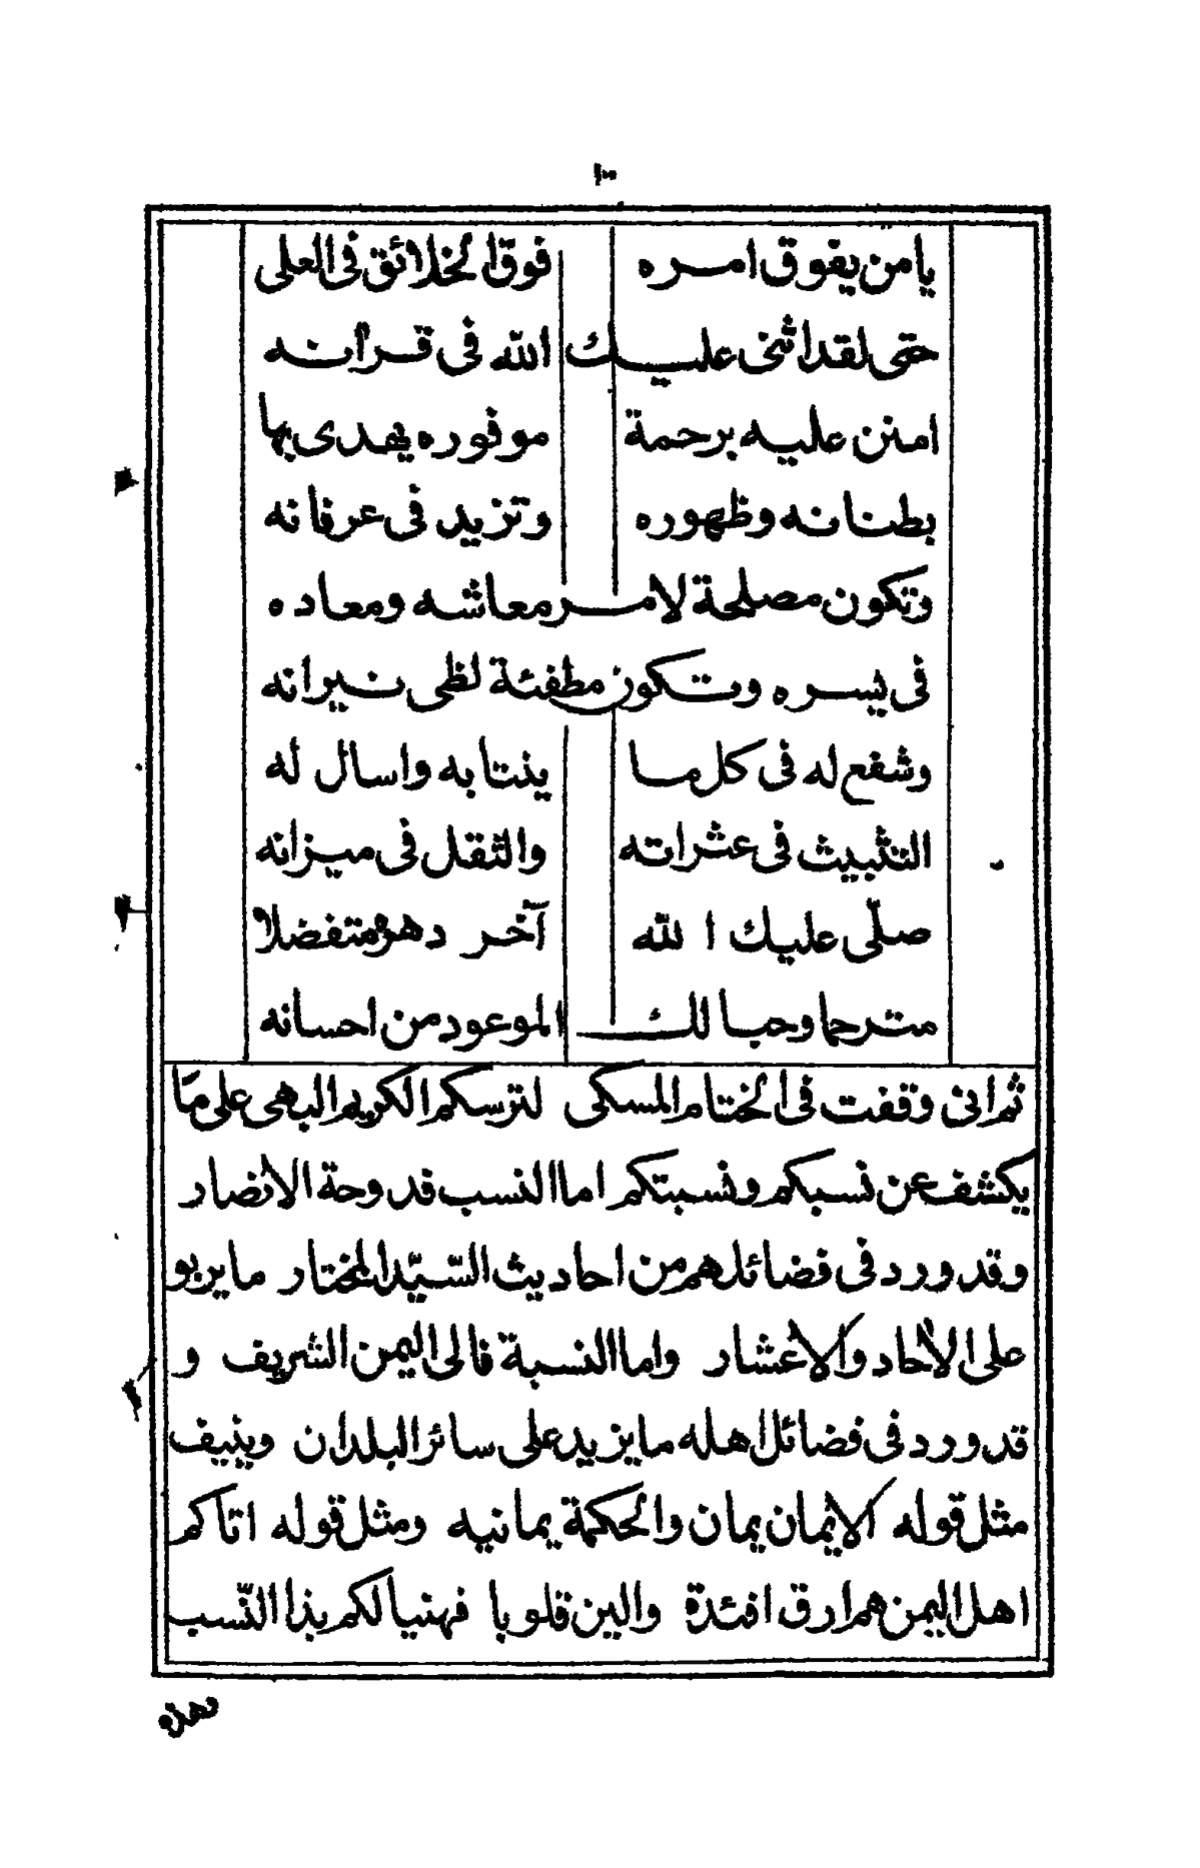 ١٠٠
يا من يفوق امره فوق الخلائق فى العلى
حتى لقد اثنى عليك الله فى قرآنه
امنن عليه برحمة موفوره يهدى بها
بطنانه وظهوره وتزيد فى عرفانه
وتكون مصلحة لامر معاشه ومعاده
فى يسره وتكون مطفئة لظى نيرانه
وشفع له فى كل ما ينتابه واسال له
التثبيث فى عثراته والثقل فى ميزانه
صلّى عليك الله آخر دهره متفضلا
مترحما وحبا لك الموعود من احسانه
ثم انى وقفت فى الختام المسكى لترسكم الكريم البهى على ما
يكشف عن نسبكم ونسبتكم اما النسب فدوحة الانضار
وقد ورد فى فضائلهم من احاديث السّيّد المختار ما يربو
على الآحاد والاعشار واما النسبة فالى اليمن الشريف و
قد ورد فى فضائل اهله ما يزيد على سائر البلدان وينيف
مثل قوله الايمان يمان والحكمة يمانيه ومثل قوله اتاكم
اهل اليمن هم ارق افئدة والين قلوبا فهنيا لكم بذا النّسب
وهذه